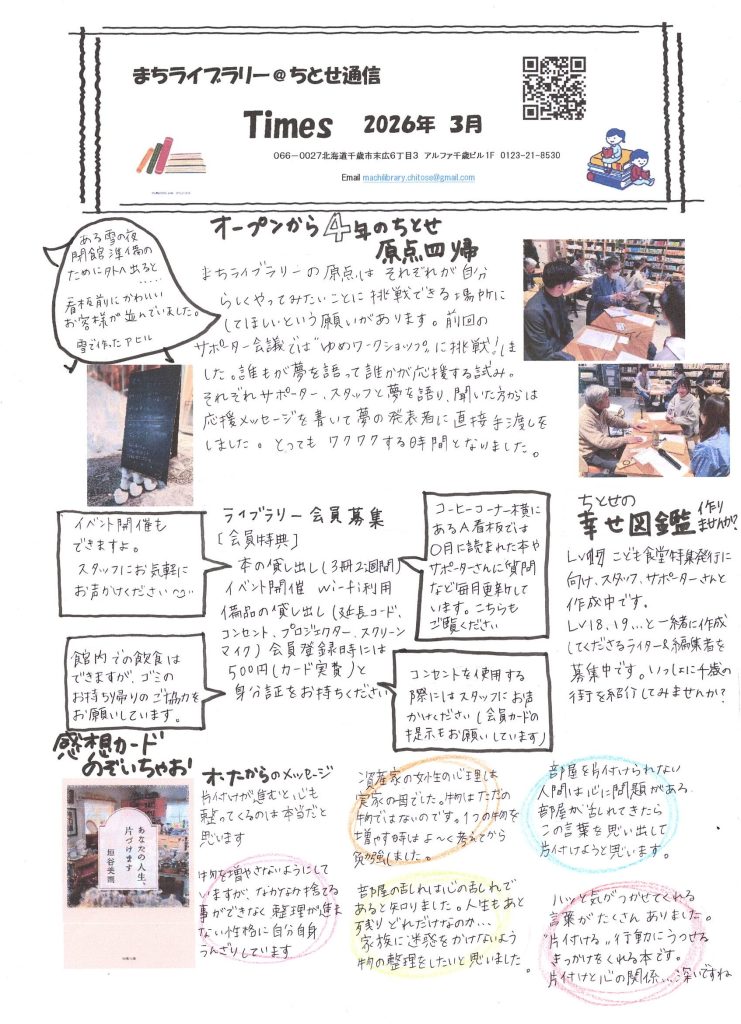 まちライブラリー@ちとせ通信
Times 2026年 3月
066-0027北海道千歳市末広6丁目3 アルファ千歳ビル1F 0123-21-8530
Email machilibrary.chitose@gmail.com
オープンから4年のちとせ
原点回帰
ある雪の夜
閉館準備の
ために外へ出ると
.....
看板前にかわいい
お客様が並んでいました。
雪で作ったアヒル
まちライブラリーの原点は それぞれが自分
らしくやってみたいことに挑戦できる場所に
してほしいという願いがあります。前回の
サポーター会議では“ゆめワークショップ”に挑戦!しま
した。誰もが夢を語って誰かが応援する試み。
それぞれサポーター、スタッフと夢を語り、聞いた方からは
応援メッセージを書いて夢の発表者に直接手渡しを
しました。とっても ワクワクする時間となりました。
イベント開催も
できますよ。
スタッフにお気軽に
お声がけください
館内での飲食は
できますが、ゴミの
お持ち帰りのご協力を
お願いしています。
ライブラリー会員募集
[会員特典]
本の貸し出し(3冊2週間)
イベント開催 Wi-Fi利用
備品の貸し出し(延長コード、
コンセント、プロジェクター、スクリーン
マイク)会員登録時には
500円(カード実費)と
身分証をお持ちください
コーヒーコーナー横に
あるA看板では
〇月に読まれた本や
サポーターさんに質問
など毎月更新して
います。こちらも
ご覧ください
コンセントを使用する
際にはスタッフにお声
がけください(会員カードの
提示もお願いしています)
ちとせの
幸せ図鑑 作り
ませんか?
こども食堂特集発行に
向け、スタッフ、サポーターさんと
作成中です。
LV18、19...と一緒に作成
してくださるライター&編集者を
募集中です。いっしょに千歳の
街を紹介してみませんか?
感想カード
のぞいちゃお!
あなたの人生、
片づけます
垣谷美雨
からのメッセージ
片付けが進むと、心も
整ってくるのは本当だと
思います
物を増やさないようにして
いますが、なかなか捨てる
事ができなく整理が進ま
ない性格に自分自身
うんざりしています
資産家の女性の心理は
実家の母でした。物はただの
物ではないのです。1つの物を
増やす時はよ〜く考えてから
勉強しました。
部屋の乱れは心の乱れで
あると知りました。人生もあと
残りどれだけなのか...
家族に迷惑をかけないよう
物の整理をしたいと思いました
部屋を片付けられない
人間は心に問題がある
部屋が乱れてきたら
この言葉を思い出して
片付けようと思います。
ハッと気がつかせてくれる
言葉がたくさんありました。
“片付ける”行動にうつせる
きっかけをくれる本です。
片付けと心の関係...深いですね